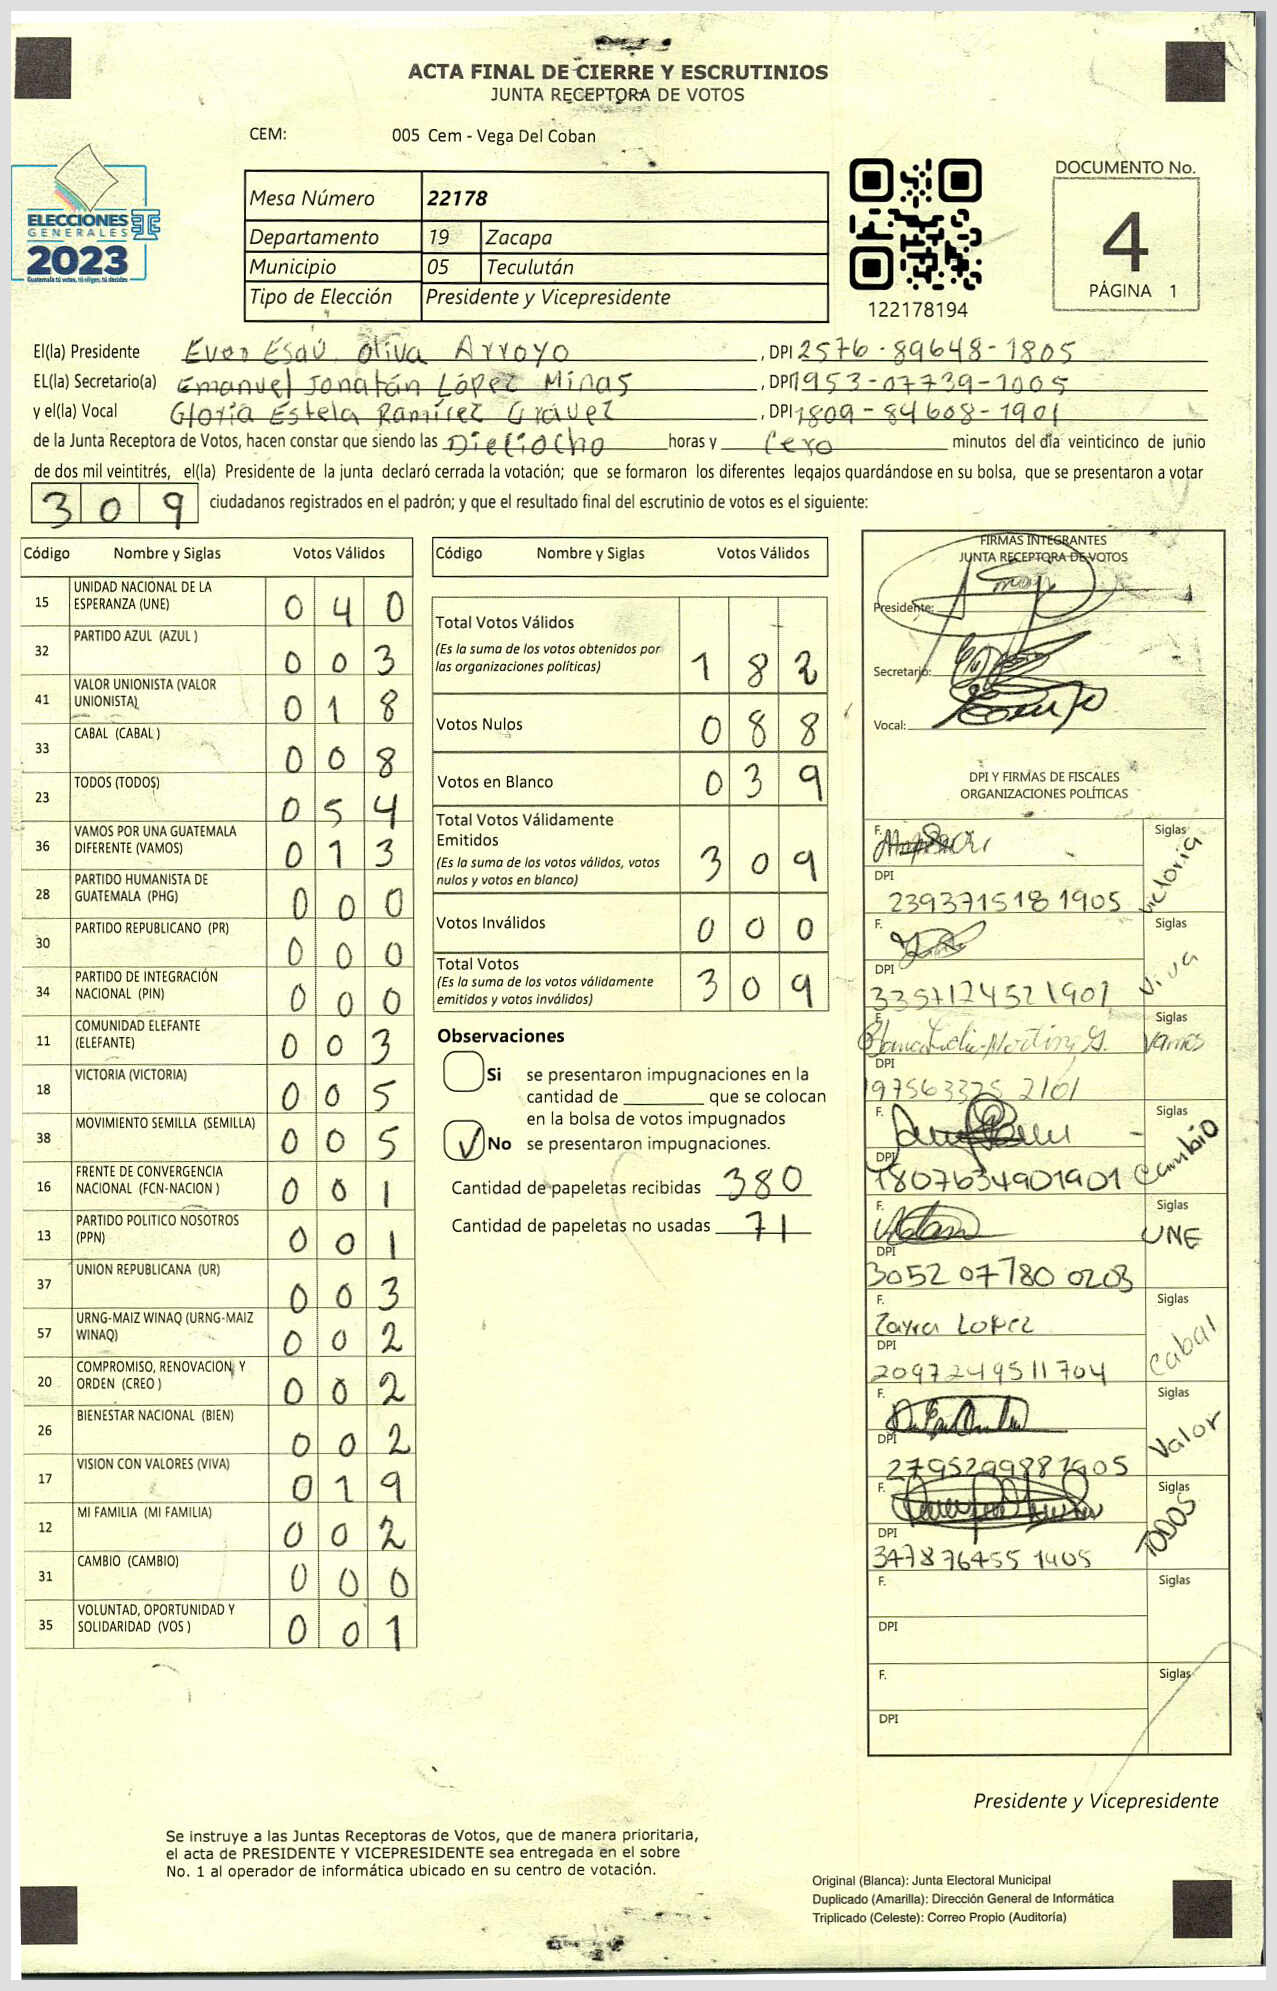 ACTA FINAL DE CIERRE Y ESCRUTINIOS
JUNTA RECEPTORA DE VOTOS
CEM: 005 Cem - Vega Del Coban
ELECCIONES
GENERALES
2023
Guatemala tú votas, tú eliges, tú decides
Mesa Número 22178
Departamento 19 Zacapa
Municipio 05 Teculután
Tipo de Elección Presidente y Vicepresidente
122178194
DOCUMENTO No.
4
PÁGINA 1
El(la) Presidente Ever Esaú Oliva Arroyo, DPI 2576-89648-1805
EL(la) Secretario(a) Emanuel Jonatán López Minas, DPI 1953-07739-1005
y el(la) Vocal Gloria Estela Ramírez, DPI 1809-84608-1901
de la Junta Receptora de Votos, hacen constar que siendo las Dieciocho horas y Cero minutos del día veinticinco de junio
de dos mil veintitrés, el(la) Presidente de la junta declaró cerrada la votación; que se formaron los diferentes legajos quardándose en su bolsa, que se presentaron a votar
309 ciudadanos registrados en el padrón; y que el resultado final del escrutinio de votos es el siguiente:
Código Nombre y Siglas Votos Válidos
15 UNIDAD NACIONAL DE LA ESPERANZA (UNE) 040
32 PARTIDO AZUL (AZUL ) 003
41 VALOR UNIONISTA (VALOR UNIONISTA) 018
33 CABAL (CABAL ) 008
23 TODOS (TODOS) 054
36 VAMOS POR UNA GUATEMALA DIFERENTE (VAMOS) 013
28 PARTIDO HUMANISTA DE GUATEMALA (PHG) 000
30 PARTIDO REPUBLICANO (PR) 000
34 PARTIDO DE INTEGRACIÓN NACIONAL (PIN) 000
11 COMUNIDAD ELEFANTE (ELEFANTE) 003
18 VICTORIA (VICTORIA) 005
38 MOVIMIENTO SEMILLA (SEMILLA) 005
16 FRENTE DE CONVERGENCIA NACIONAL (FCN-NACION ) 001
13 PARTIDO POLITICO NOSOTROS (PPN) 001
37 UNION REPUBLICANA (UR) 003
57 URNG-MAIZ WINAQ (URNG-MAIZ WINAQ) 002
20 COMPROMISO, RENOVACION, Y ORDEN (CREO ) 002
26 BIENESTAR NACIONAL (BIEN) 002
17 VISION CON VALORES (VIVA) 019
12 MI FAMILIA (MI FAMILIA) 002
31 CAMBIO (CAMBIO) 000
35 VOLUNTAD, OPORTUNIDAD Y SOLIDARIDAD (VOS ) 001
Código Nombre y Siglas Votos Válidos
Total Votos Válidos
(Es la suma de los votos obtenidos por las organizaciones políticas) 182
Votos Nulos 088
Votos en Blanco 039
Total Votos Válidamente Emitidos
(Es la suma de los votos válidos, votos nulos y votos en blanco) 309
Votos Inválidos 000
Total Votos
(Es la suma de los votos válidamente emitidos y votos inválidos) 309
Observaciones
Si se presentaron impugnaciones en la
cantidad de ________ que se colocan
en la bolsa de votos impugnados
✓ No se presentaron impugnaciones.
Cantidad de papeletas recibidas 380
Cantidad de papeletas no usadas 71
FIRMAS INTEGRANTES
JUNTA RECEPTORA DE VOTOS
Presidente:
Secretario:
Vocal:
DPI Y FIRMAS DE FISCALES
ORGANIZACIONES POLÍTICAS
F. Siglas Victoria
DPI 239371518 1905
F. Siglas Viva
DPI 3357124521901
F. Siglas Vamos
DPI 197563325 2101
F. Siglas Cambio
DPI 1807634901901
F. Siglas UNE
DPI 3052 07780 0203
F. Zayra Lopez Siglas Cabal
DPI 2097249511704
F. Siglas Valor
DPI 2795299881905
F. Siglas TODOS
DPI 347876455 1905
F. Siglas
DPI
F. Siglas
DPI
Presidente y Vicepresidente
Se instruye a las Juntas Receptoras de Votos, que de manera prioritaria,
el acta de PRESIDENTE Y VICEPRESIDENTE sea entregada en el sobre
No. 1 al operador de informática ubicado en su centro de votación.
Original (Blanca): Junta Electoral Municipal
Duplicado (Amarilla): Dirección General de Informática
Triplicado (Celeste): Correo Propio (Auditoría)